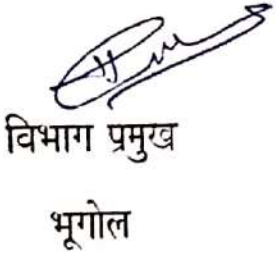 विभाग प्रमुख
भूगोल